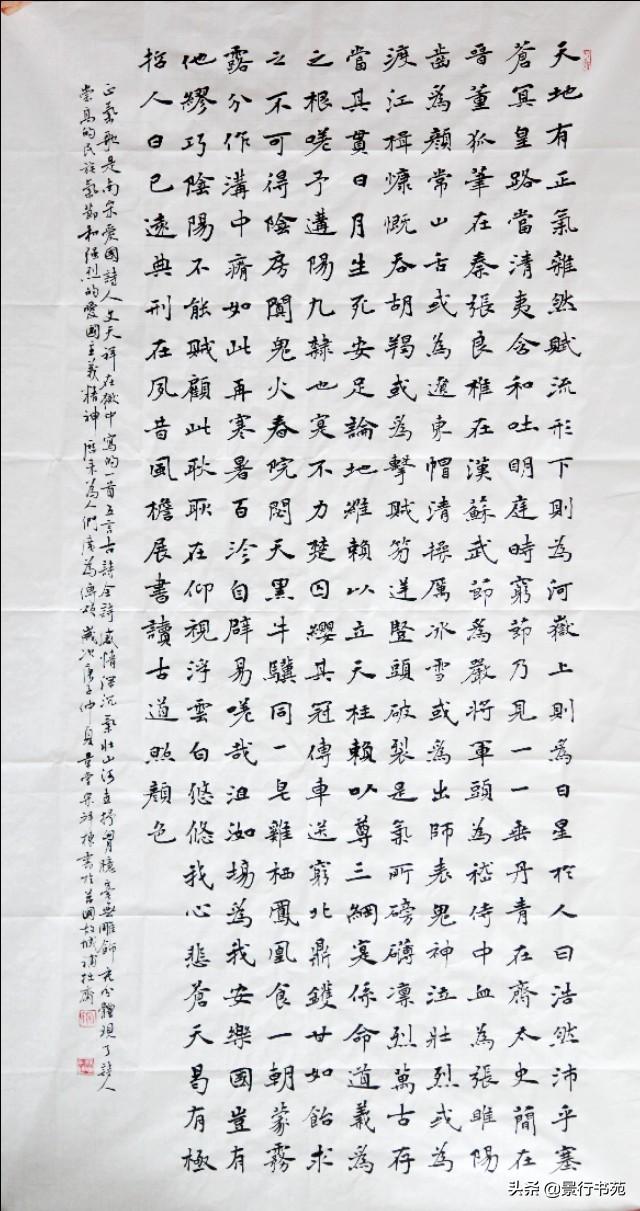 天地有正氣雜然賦流形下則為河嶽上則為日星於人曰浩然沛乎塞
蒼冥皇路當清夷含和吐明庭時窮節乃見一一垂丹青在齊太史簡在
晉董狐筆在秦張良椎在漢蘇武節為嚴將軍頭為嵇侍中血為張睢陽
齒為顏常山舌或為遼東帽清操厲冰雪或為出師表鬼神泣壯烈或為
渡江楫慷慨吞胡羯或為擊賊笏逆豎頭破裂是氣所磅礴凜烈萬古存
當其貫日月生死安足論地維賴以立天柱賴以尊三綱寔係命道義為
之根嗟予遘陽九隸也寔不力楚囚纓其冠傳車送窮北鼎鑊甘如飴求
之不可得陰房闃鬼火春院閟天黑牛驥同一皂雞栖鳳凰食一朝蒙霧
露分作溝中瘠如此再寒暑百沴自辟易嗟哉沮洳場為我安樂國豈有
他繆巧陰陽不能賊顧此耿耿在仰視浮雲白悠悠我心悲蒼天曷有極
哲人日已遠典刑在夙昔風檐展書讀古道照顏色
正氣歌是南宋愛國詩人文天祥在獄中寫的一首五言古詩全詩感情深沉氣壯山河直抒胸臆毫無雕飾充分體現了詩人
崇高的民族氣節和强烈的愛國主義精神歷來為人們廣為傳頌歲次庚子仲夏書於莒國故城
头条@景行书苑